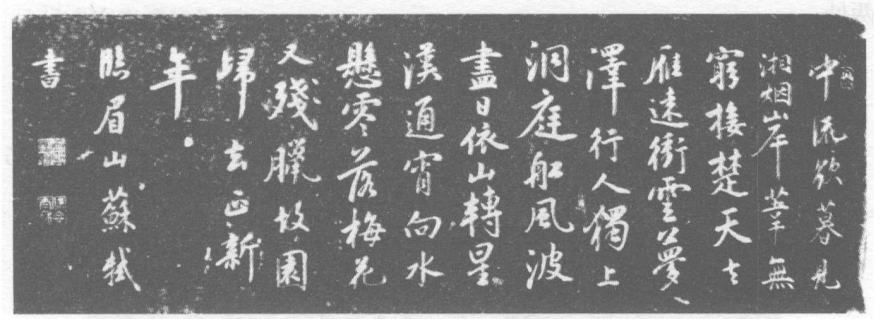 中流欲暮見
湘烟岸葦無
窮接楚天去
雁遠衝雲夢
澤行人獨上
洞庭船風波
盡日依山轉星
漢通宵向水
懸零落梅花
又殘臘故園
歸去正新
年
眉山蘇軾
書